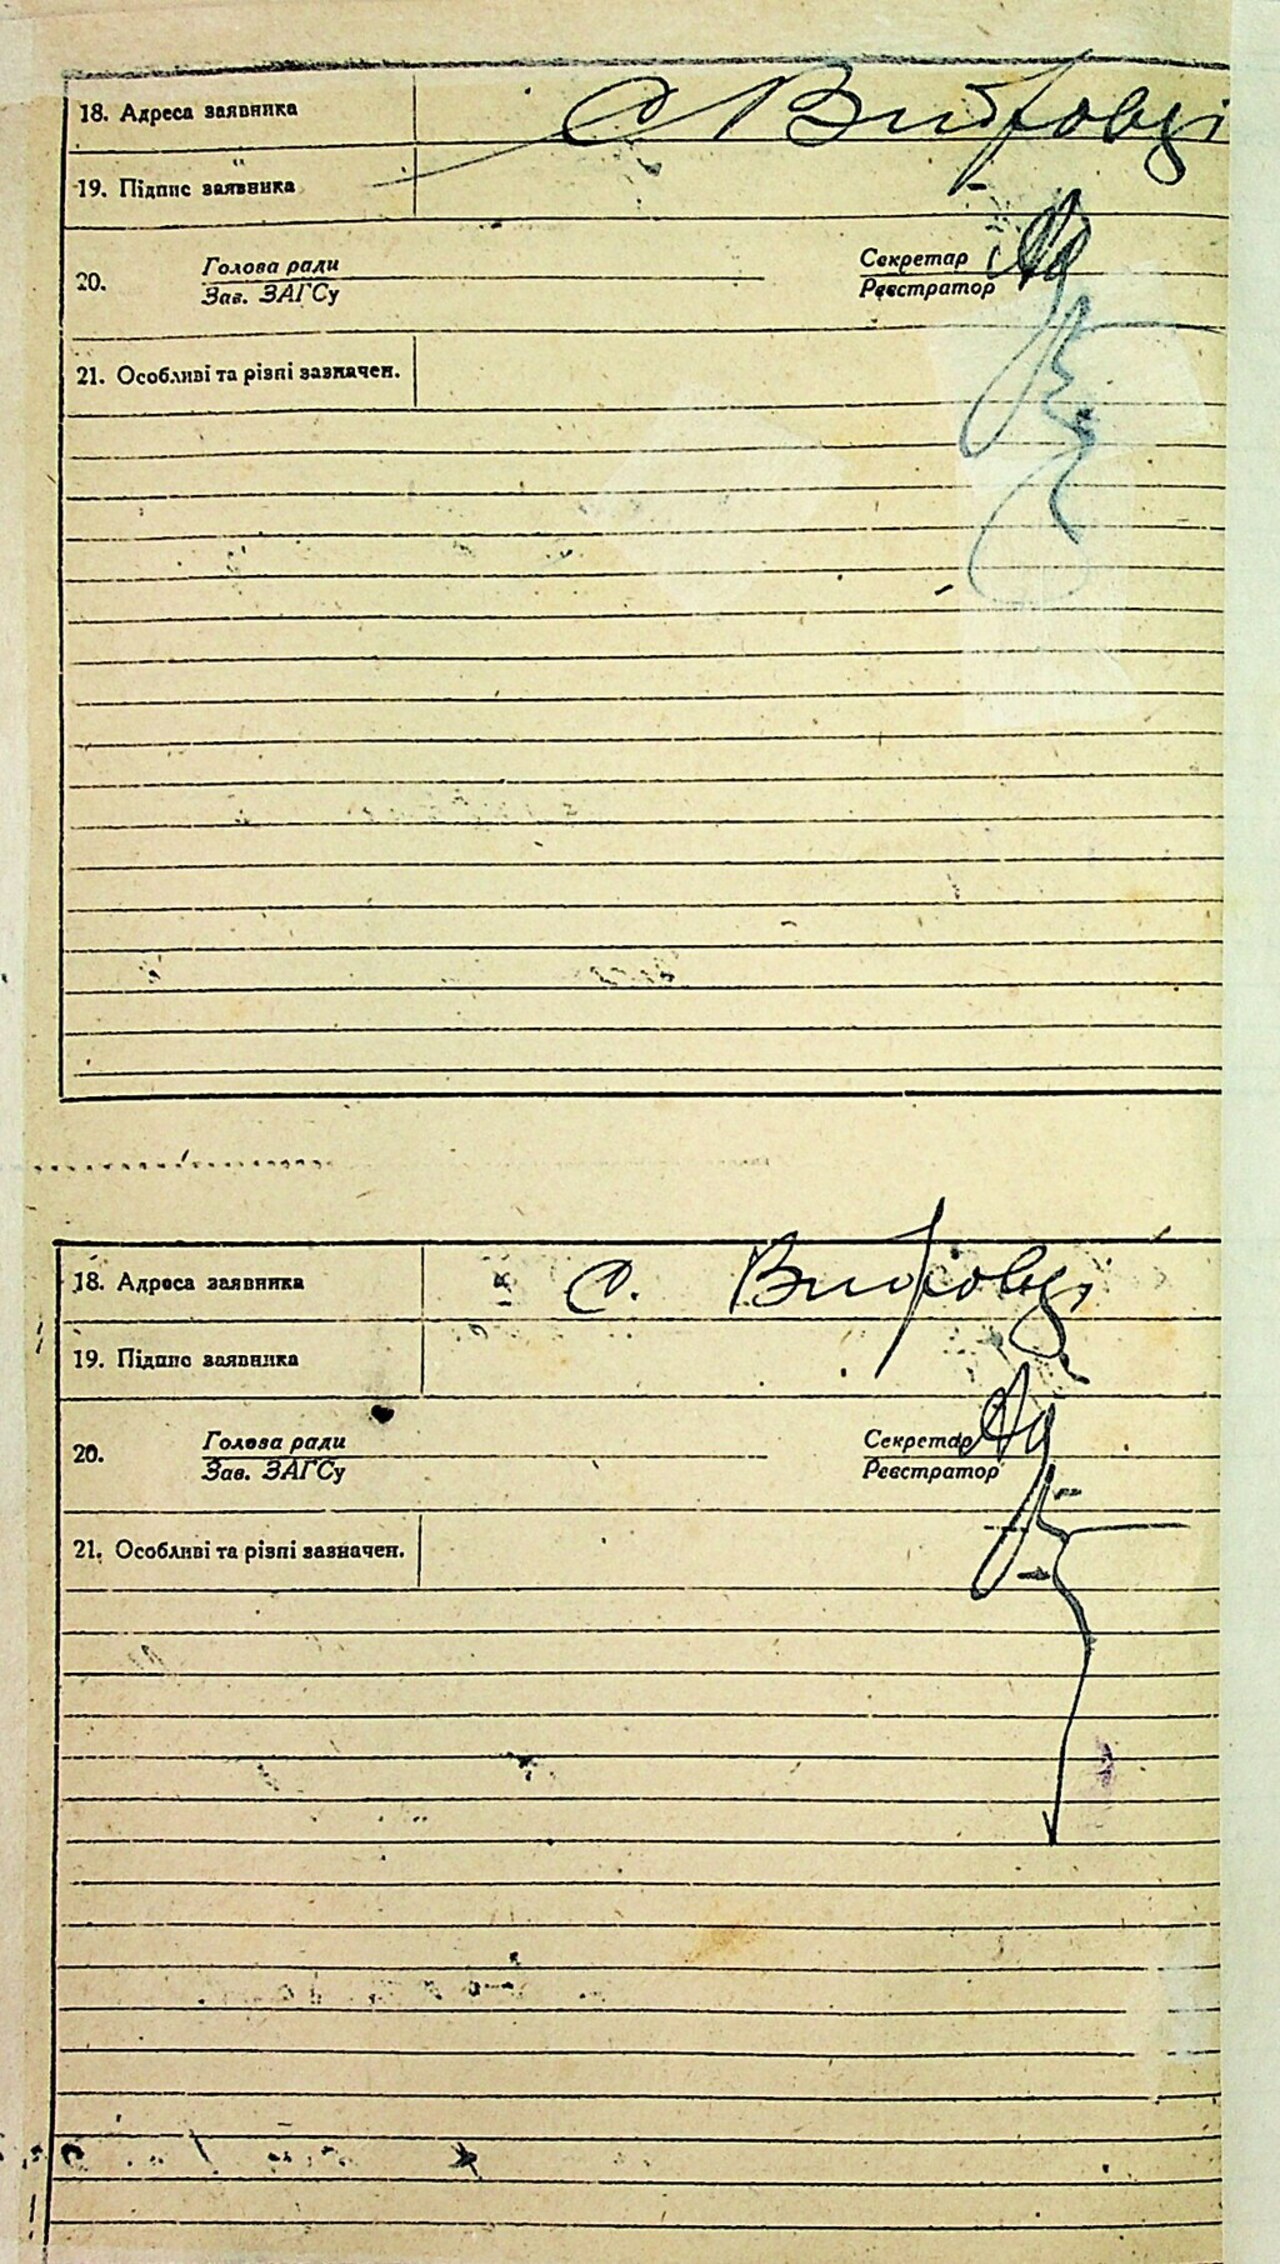 18. Адреса заявника с. Видровці
19. Підпис заявника
20. Голова ради Секретар
Зав. ЗАГСу Реєстратор
21. Особливі та різні зазначен.
18. Адреса заявника с.
19. Підпис заявника
20. Голова ради Секретар
Зав. ЗАГСу Реєстратор
21. Особливі та різні зазначен.